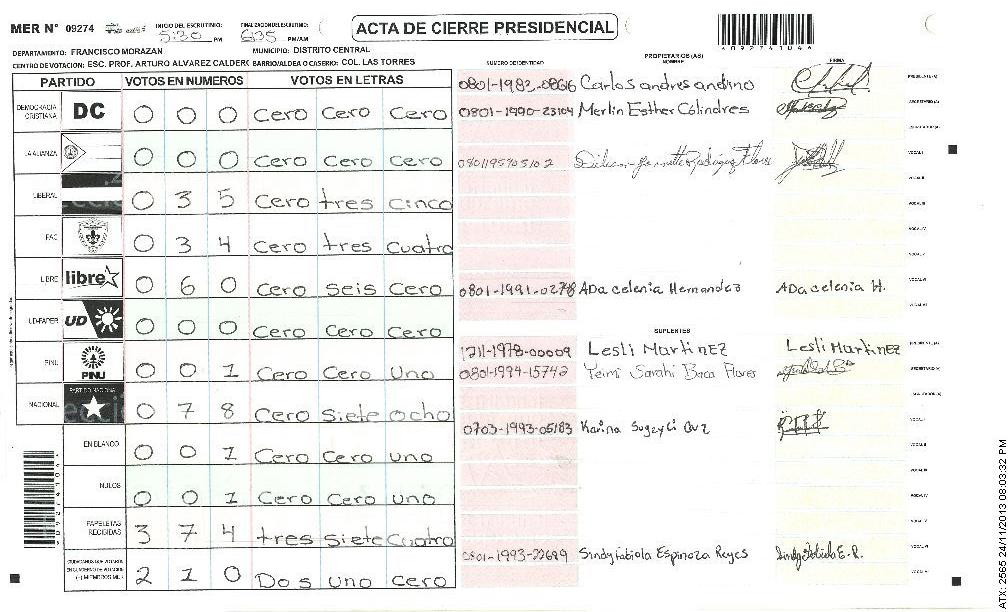 MER N° 09274 INICIO DEL ESCRUTINIO: 5:30 PM FINALIZACION DEL ESCRUTINIO: 6:35 PM/AM ACTA DE CIERRE PRESIDENCIAL
DEPARTAMENTO: FRANCISCO MORAZAN MUNICIPIO: DISTRITO CENTRAL
CENTRO DE VOTACION: ESC. PROF. ARTURO ALVAREZ CALDERO BARRIO/ALDEA O CASERIO: COL. LAS TORRES
PARTIDO VOTOS EN NUMEROS VOTOS EN LETRAS
NUMERO DE IDENTIDAD PROPIETARIOS(AS) NOMBRE FIRMA
DEMOCRACIA CRISTIANA DC 0 0 0 Cero Cero Cero
LA ALIANZA 0 0 0 Cero Cero Cero
LIBERAL 0 3 5 Cero tres cinco
PAC 0 3 4 Cero tres cuatro
LIBRE libre 0 6 0 Cero seis cero
UD-FAPER UD 0 0 0 Cero Cero Cero
PINU PINU 0 0 1 Cero Cero uno
NACIONAL PARTIDO NACIONAL 0 7 8 Cero siete ocho
EN BLANCO 0 0 1 Cero Cero uno
NULOS 0 0 1 Cero Cero uno
PAPELETAS RECIBIDAS 3 7 4 tres siete cuatro
2 1 0 Dos uno cero
0801-1982-08616 Carlos andres andino PRESIDENTE(A)
0801-1990-23104 Merlin Esther Colindres SECRETARIO(A)
ESCRUTADOR(A)
0801195905102 VOCAL I
VOCAL II
VOCAL III
VOCAL IV
VOCAL V
0801-1991-02798 ADa celenia Hernandez ADa celenia H. VOCAL VI
VOCAL VII
SUPLENTES
1711-1978-00009 Lesli MartinEZ Lesli MartinEZ PRESIDENTE(A)
0801-1994-15742 Yeimi Sarahi Baca Flores SECRETARIO(A)
ESCRUTADOR(A)
0703-1993-05183 Karina Sugeyli Cruz VOCAL I
VOCAL II
VOCAL III
VOCAL IV
VOCAL V
0801-1993-22689 Sindy fabiola Espinoza Reyes Sindy fabiola E.R. VOCAL VI
VOCAL VII
ATX: 2565 24/11/2013 08:03:32 PM